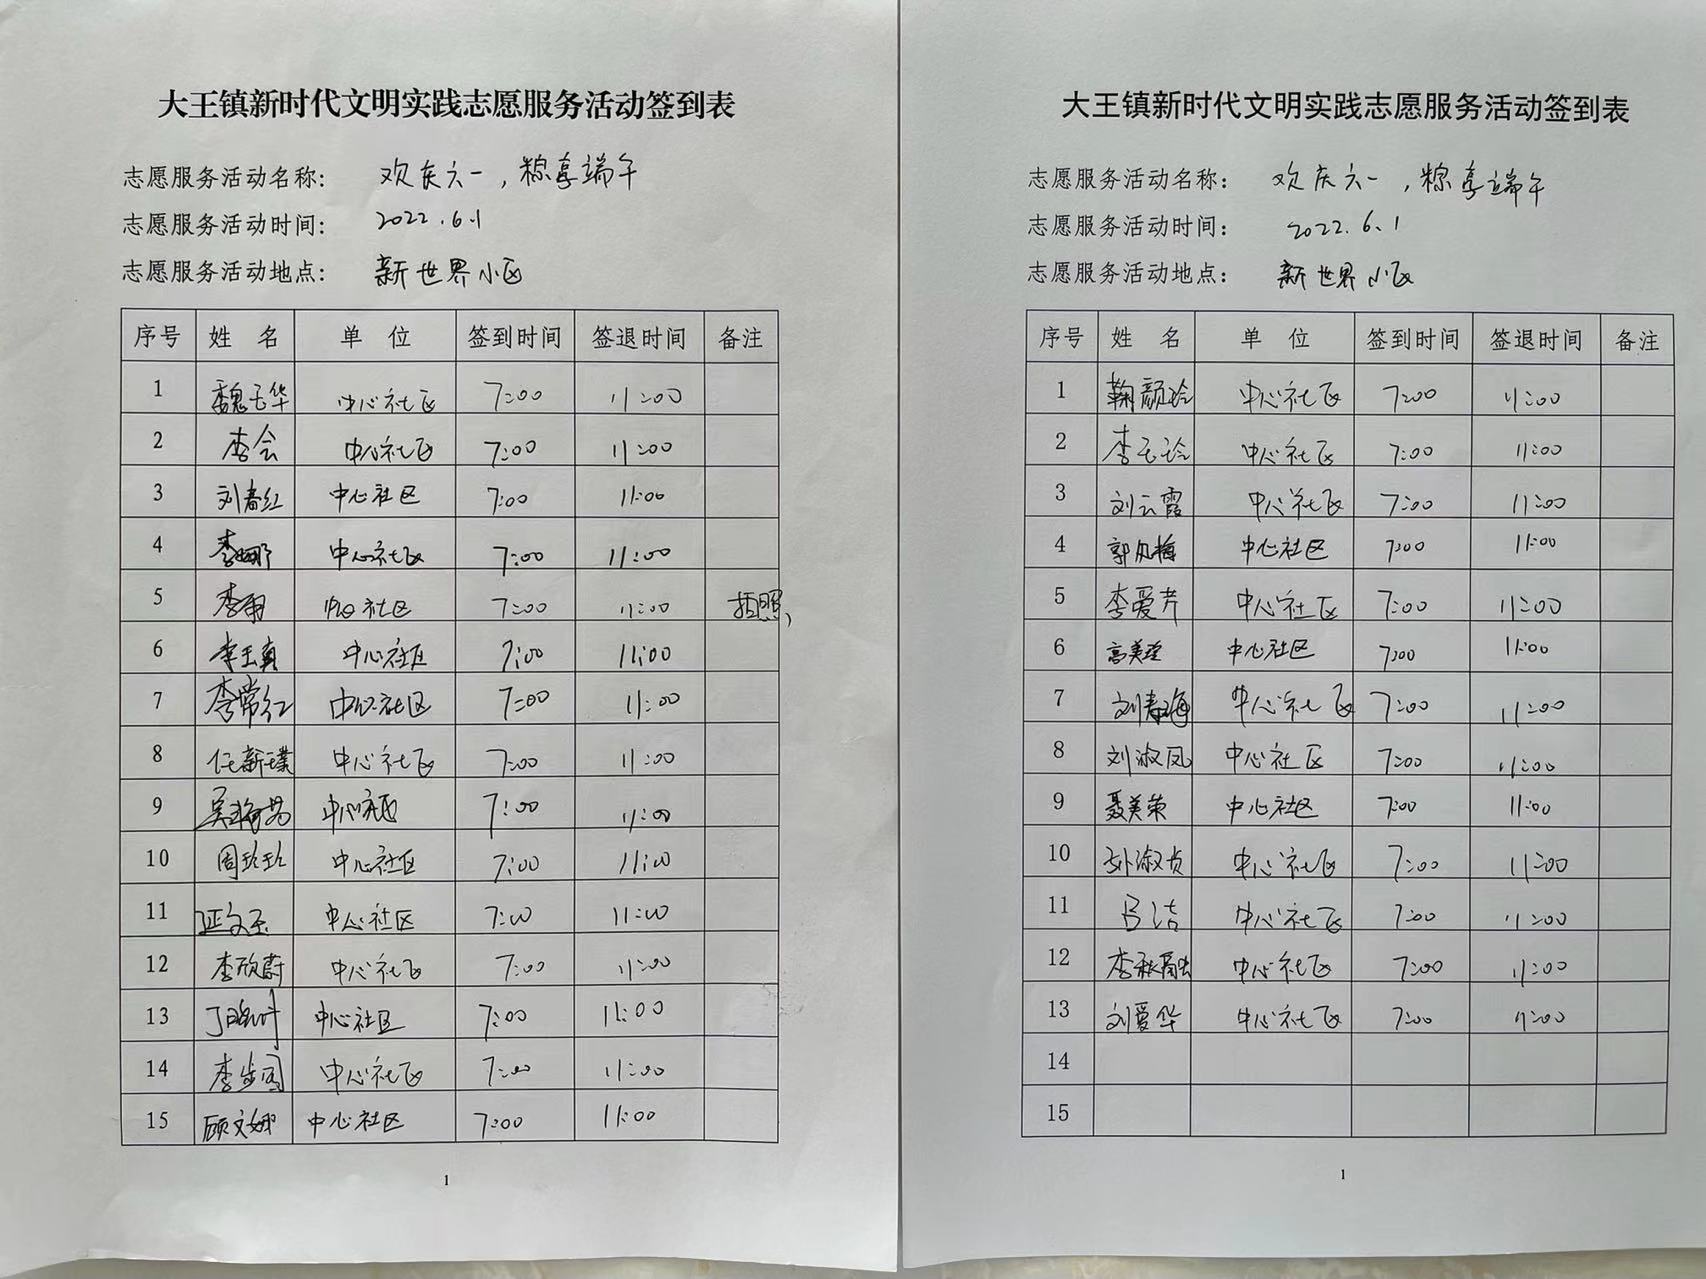 大王镇新时代文明实践志愿服务活动签到表
志愿服务活动名称： 欢庆六一，粽享端午
志愿服务活动时间： 2022.6.1
志愿服务活动地点： 新世界小区
序号 姓 名 单 位 签到时间 签退时间 备注
1 魏玉华 中心社区 7:00 11:00
2 李会 中心社区 7:00 11:00
3 刘春红 中心社区 7:00 11:00
4 李娜 中心社区 7:00 11:00
5 李雨 中心社区 7:00 11:00 拍照、
6 李玉真 中心社区 7:00 11:00
7 李常红 中心社区 7:00 11:00
8 任新璞 中心社区 7:00 11:00
9 中心社区 7:00 11:00
10 周玲玲 中心社区 7:00 11:00
11 延文玉 中心社区 7:00 11:00
12 李欣蔚 中心社区 7:00 11:00
13 中心社区 7:00 11:00
14 中心社区 7:00 11:00
15 顾文娥 中心社区 7:00 11:00
1
大王镇新时代文明实践志愿服务活动签到表
志愿服务活动名称： 欢庆六一，粽享端午
志愿服务活动时间： 2022.6.1
志愿服务活动地点： 新世界小区
序号 姓 名 单 位 签到时间 签退时间 备注
1 鞠颜玲 中心社区 7:00 11:00
2 李玉玲 中心社区 7:00 11:00
3 刘云霞 中心社区 7:00 11:00
4 郭凤梅 中心社区 7:00 11:00
5 李爱芹 中心社区 7:00 11:00
6 中心社区 7:00 11:00
7 刘春海 中心社区 7:00 11:00
8 刘淑凤 中心社区 7:00 11:00
9 聂美荣 中心社区 7:00 11:00
10 孙淑贞 中心社区 7:00 11:00
11 吕洁 中心社区 7:00 11:00
12 中心社区 7:00 11:00
13 刘爱华 中心社区 7:00 11:00
14
15
1